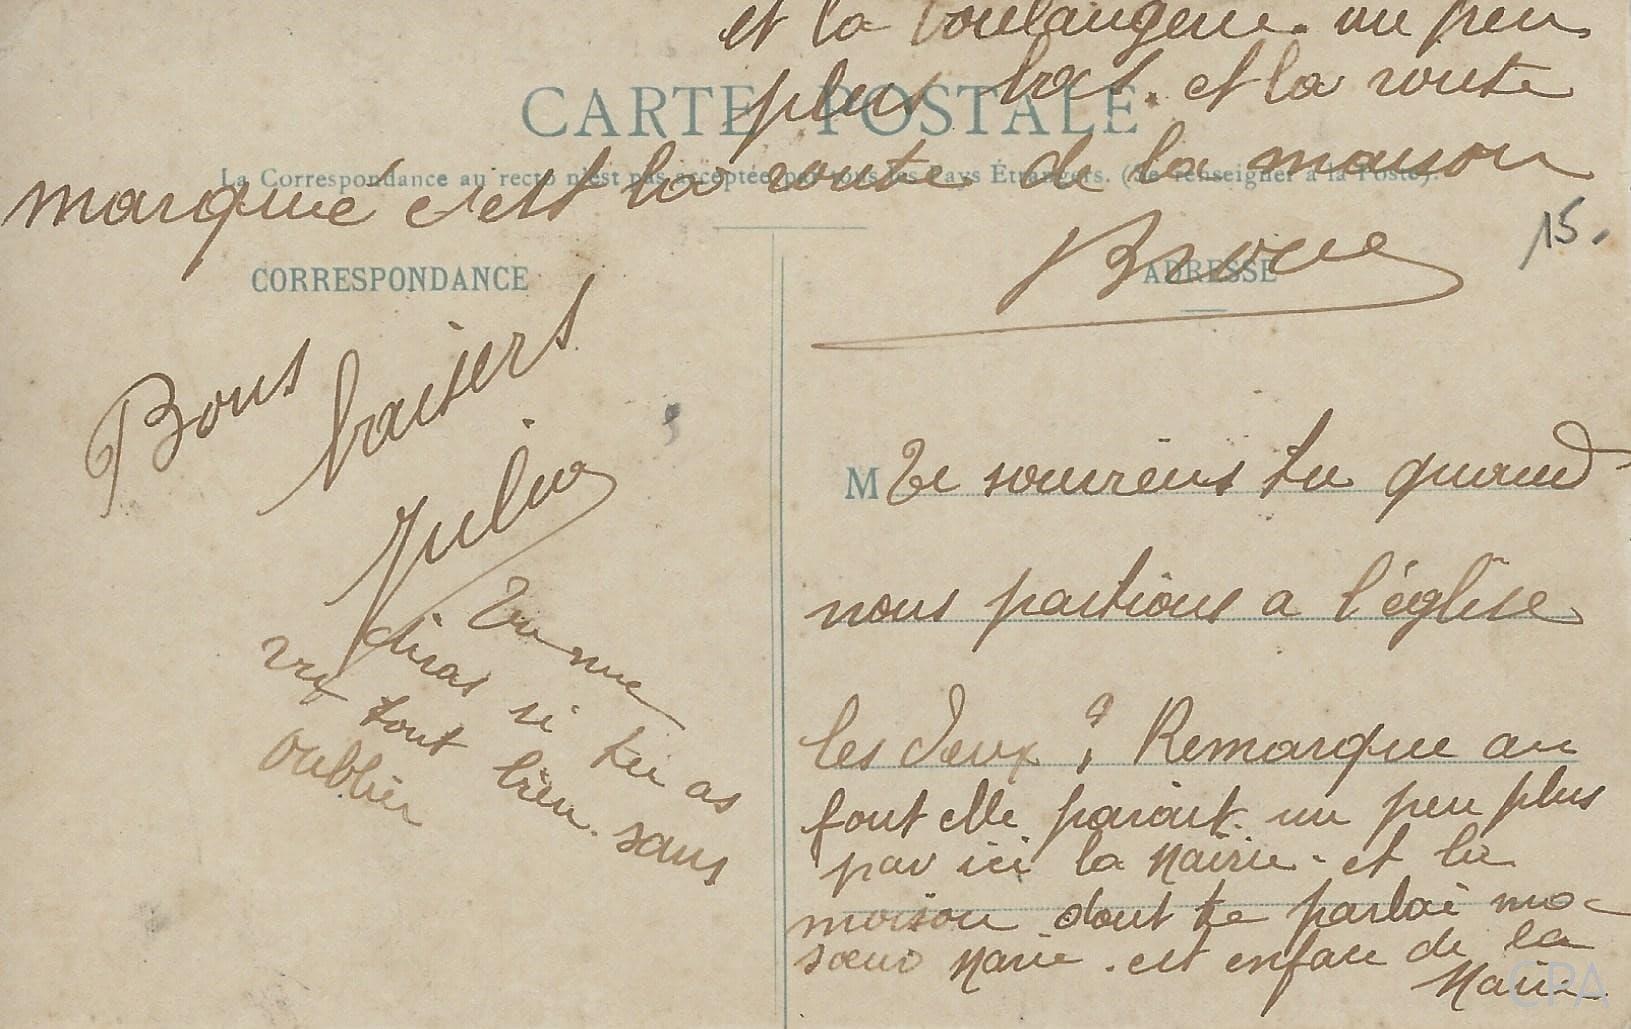 et la boulangerie. un peu
plus bas. et la route
CARTE POSTALE
La Correspondance au recto n'est pas acceptée par tous les Pays Étrangers. (Se renseigner à la Poste).
marquée c'est la route de la maison
15.
CORRESPONDANCE
ADRESSE
Bons
baisers
Julia
Tu me
diras si tu as
tout bien. sans
oublier
M Te souviens tu quand
nous partions a l'église
les deux ? Remarque au
fout elle parait. un peu plus
par ici la Mairie. et la
maison dont te parlai ma
soeur Marie. est enface de la
Mairie.
CPA